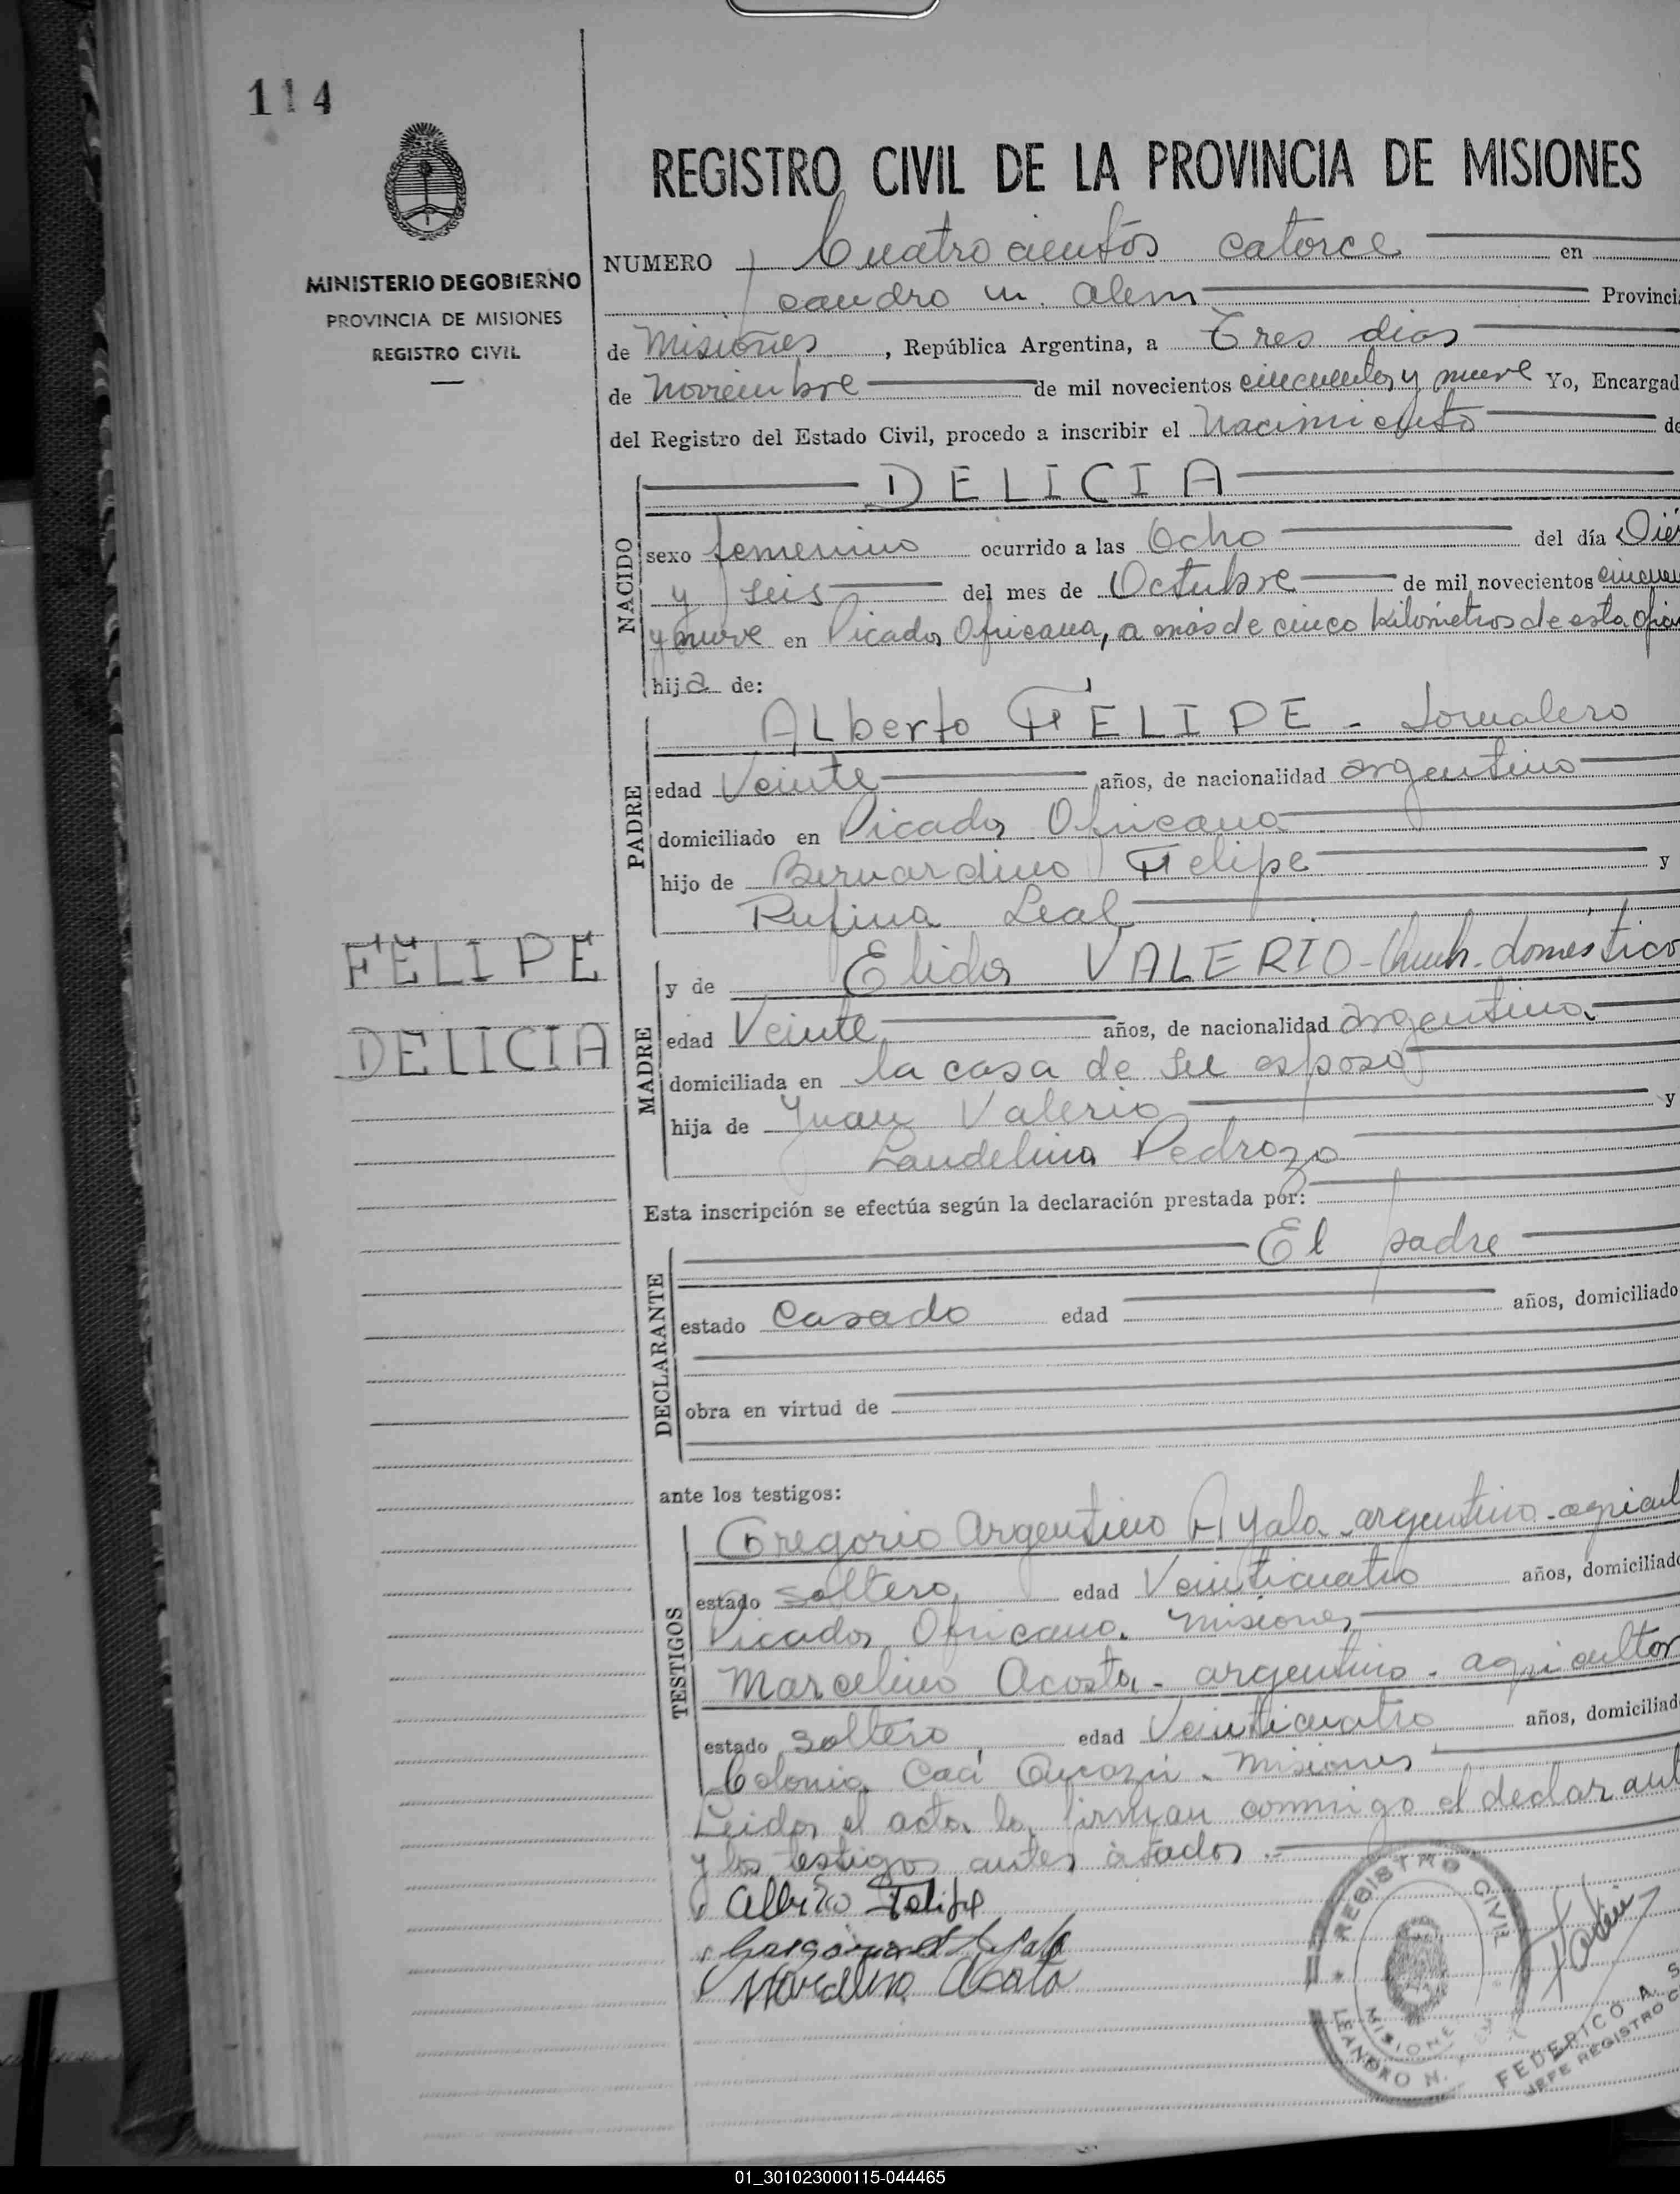 114
REGISTRO CIVIL DE LA PROVINCIA DE MISIONES
MINISTERIO DE GOBIERNO
PROVINCIA DE MISIONES
REGISTRO CIVIL
NUMERO Cuatrocientos catorce en
candro N. Alem Provinci
de Misiones, República Argentina, a Tres dias
de Noviembre de mil novecientos cincuenta y nueve Yo, Encargad
del Registro del Estado Civil, procedo a inscribir el Nacimiento de
NACIDO
DELICIA
sexo femenino ocurrido a las Ocho del día Diéz
y seis del mes de Octubre de mil novecientos cincuen
y nueve en Picada Africana, a más de cinco kilómetros de esta Ofici
hija de:
PADRE
Alberto FELIPE - Jornalero
edad Veinte años, de nacionalidad argentino
domiciliado en Picada Africana
hijo de Bernardino Felipe y
Rufina Leal
FELIPE
DELICIA
MADRE
y de Elida VALERIO - Queh. domésticos
edad Veinte años, de nacionalidad argentina
domiciliada en la casa de su esposo
hija de Juan Valerio y
Laudelina Pedrozo
Esta inscripción se efectúa según la declaración prestada por:
DECLARANTE
El padre
estado Casado edad años, domiciliado
obra en virtud de
ante los testigos:
TESTIGOS
Gregorio Argentino Ayala - argentino - agricul
estado soltero edad Veinticuatro años, domiciliado
Picada Africana. Misiones
Marcelino Acosta - argentino - agricultor
estado soltero, edad Veinticuatro años, domiciliad
Colonia Caá Misiones
Leida el acta la firman conmigo el declarant
y los testigos antes citados.-
Alberto Felipe
Marcelino Acosta
REGISTRO CIVIL
MISIONES
LEANDRO N.
FEDERICO A. S
JEFE REGISTRO C
01_301023000115-044465